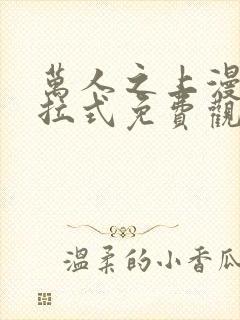 萬人之上漫
拉式免費觀
温柔的小香瓜